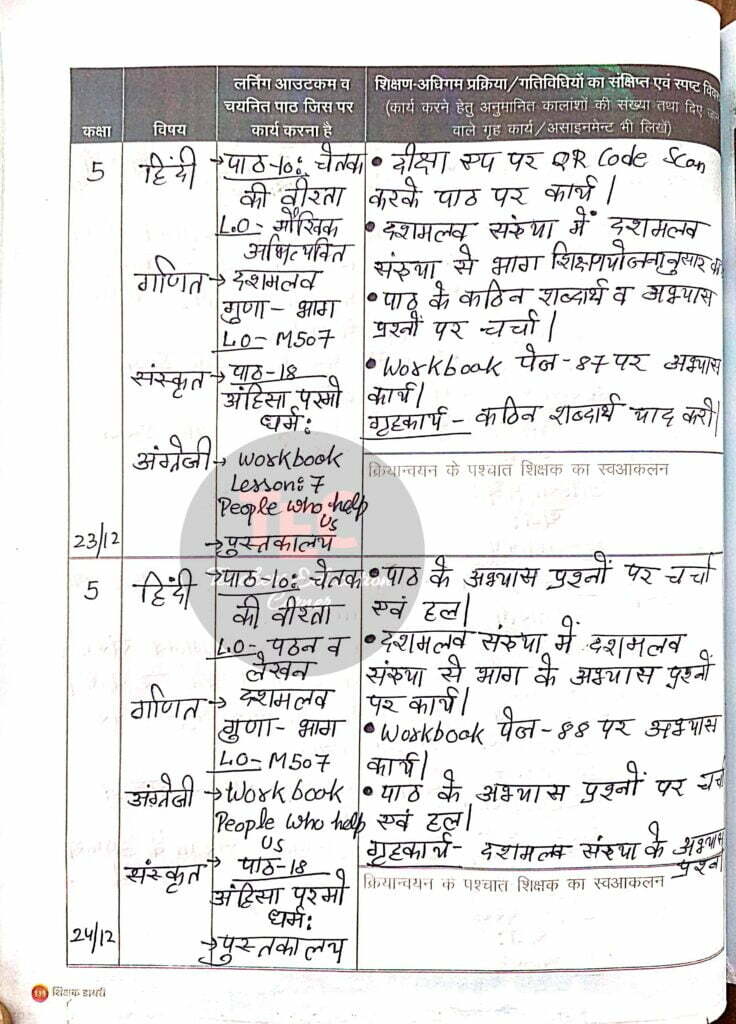 कक्षा
विषय
लर्निंग आउटकम व
चयनित पाठ जिस पर
कार्य करना है
शिक्षण-अधिगम प्रक्रिया/गतिविधियों का संक्षिप्त एवं स्पष्ट
(कार्य करने हेतु अनुमानित कालांशों की संख्या तथा दिए
वाले गृह कार्य/असाइनमेंट भी लिखें)
5
हिंदी
→पाठ-10: चेतक
की वीरता
L.O- मौखिक
अभिव्यक्ति
गणित
→ दशमलव
गुणा - भाग
L.O- M507
संस्कृत
→ पाठ-18
अंहिसा परमो
धर्म:
अंग्रेजी
→ Workbook
Lesson: 7
People who help
us
→ पुस्तकालय
23/12
• दीक्षा एप पर QR Code Scan
करके पाठ पर कार्य।
• दशमलव संख्या में दशमलव
संख्या से भाग शिक्षणयोजनानुसार
• पाठ के कठिन शब्दार्थ व अभ्यास
प्रश्नों पर चर्चा।
• Workbook पेज-87 पर अभ्यास
कार्य।
गृहकार्य - कठिन शब्दार्थ याद करो।
क्रियान्वयन के पश्चात शिक्षक का स्वआकलन
TEC
Corner
5
हिंदी
पाठ-10: चेतक
की वीरता
L.O- पठन व
लेखन
गणित
→ दशमलव
गुणा - भाग
L.O- M507
अंग्रेजी
→ Workbook
People who help
us
संस्कृत
→ पाठ-18
अंहिसा परमो
धर्म:
→ पुस्तकालय
24/12
• पाठ के अभ्यास प्रश्नों पर चर्चा
एवं हल।
• दशमलव संख्या में दशमलव
संख्या से भाग के अभ्यास प्रश्नों
पर कार्य।
• Workbook पेज-88 पर अभ्यास
कार्य।
• पाठ के अभ्यास प्रश्नों पर चर्चा
एवं हल।
गृहकार्य- दशमलव संख्या के अभ्यास
प्रश्न।
क्रियान्वयन के पश्चात शिक्षक का स्वआकलन
शिक्षक डायरी